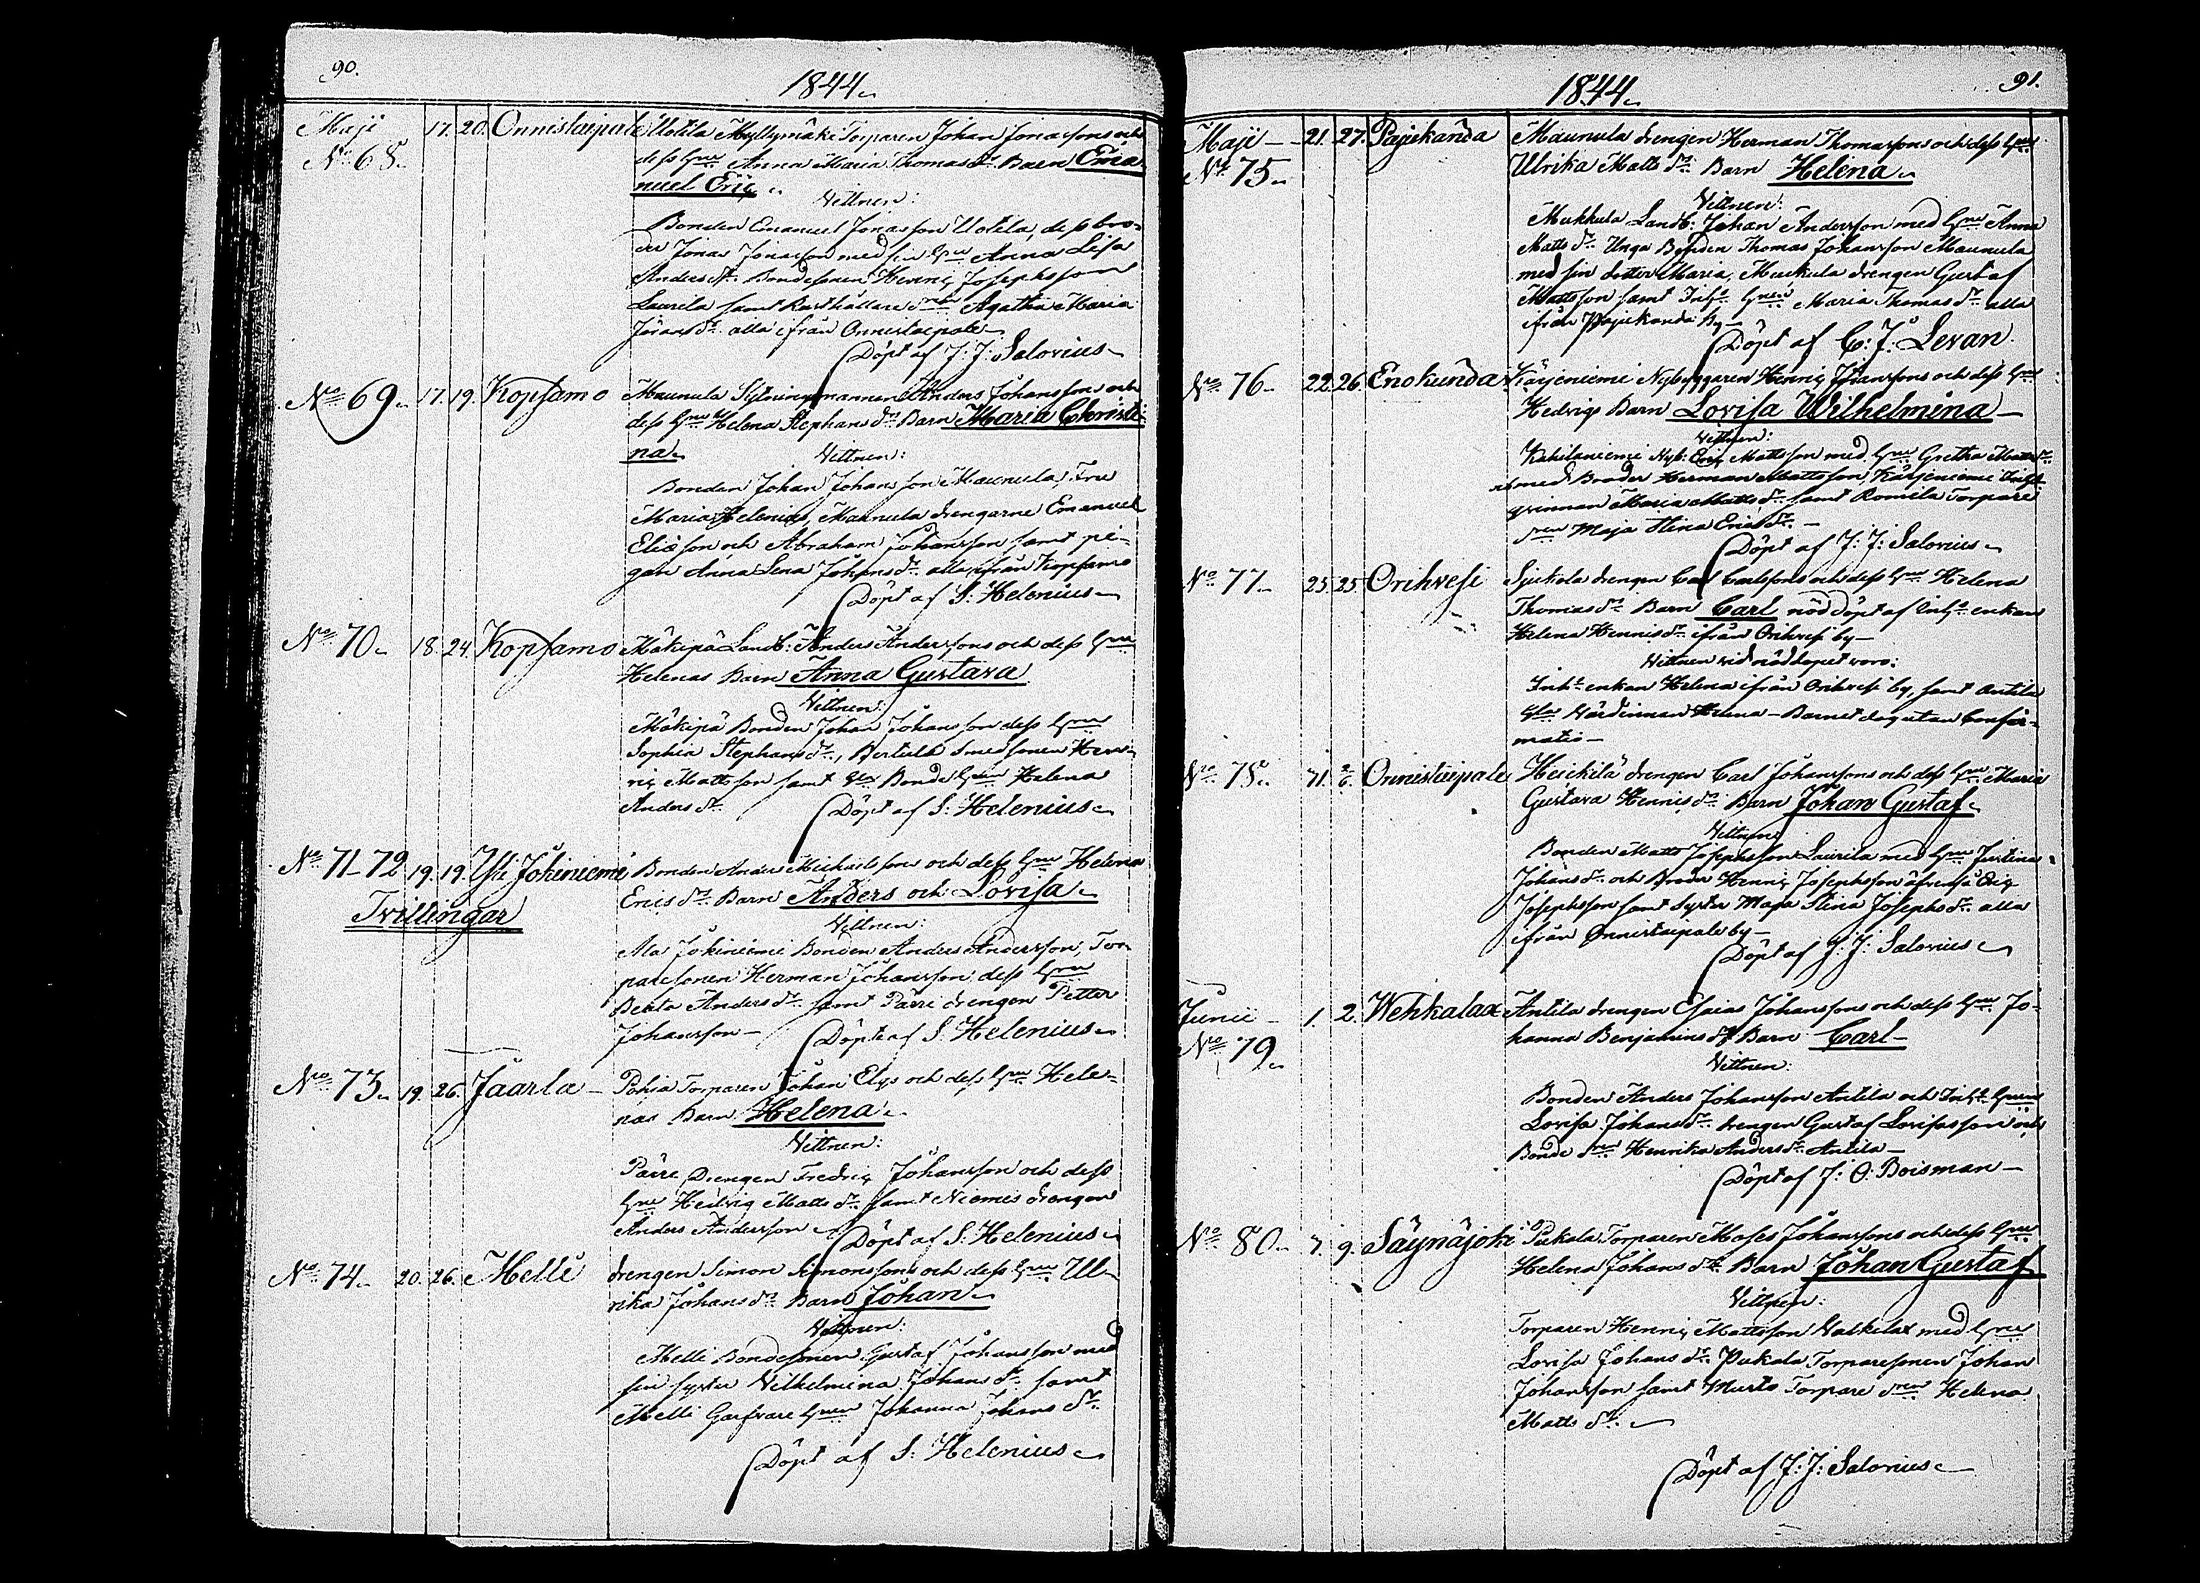 90.
1844
Maji 17. 20. Onnistaipale Uotila Myllymäki Torparen Johan Jonassons och
No 68. dess Hu Anna Maria Thomas dr Barn Ema-
nuel Eric
Vittnen:
Bonden Emanuel Jonasson Uotila, dess bro-
der Jonas Jonasson med sin Hu Anna Lisa
Anders dr Bondesonen Henric Josephsson
Laurila samt Rusthållare Agatha Maria
Görans dr alla ifrån Onnistaipale
Döpt af J: J: Salovius
No 69 17. 19. Kopsamo Maunula Anders Johanssons och
dess Hu Helena Stephans dr Barn Maria Christi-
na
Vittnen:
Bonden Johan Johansson Maunula, Fru
Maria Helenia, Maunula drengarne Emanuel
Eliasson och Abraham Johansson samt pi-
gan Anna Lena Johans dr alla ifrån Kopsamo
Döpt af S: Helenius
No 70 18. 24. Kopsamo Mäkipä Landb: Anders Anderssons och dess Hu
Helenas Barn Anna Gustava
Vittnen:
Mäkipä Bonden Johan Johansson dess Hu
Sophia Stephans dr, Bertula smedsonen Hen-
ric Mattsson samt Bonde Helena
Anders dr Döpt af S: Helenius
No 71-72 19. 19. Yli Jokiniemi Bonden Anders Michaelsson och dess Hu Helena
Tvillingar Erics dr Barn Anders och Lovisa
Vittnen:
Ala Jokiniemi Bonden Anders Andersson, Tor-
paresonen Herman Johansson dess Hu
Beata Anders dr samt Pärri drengen Petter
Johansson Döpt af S: Helenius
No 73 19. 26. Jaarla Pohia Torparen Johan Elgs och dess Hu Hele-
nas Barn Helena
Vittnen:
Pärre Drengen Fredric Johansson och dess
Hu Hedvig Matts dr samt Niemis drengen
Anders Andersson Döpt af S: Helenius
No 74 20. 26. Melli drengen Simon Simonssons och dess Hu Ul-
rika Johans dr Barn Johan
Vittnen:
Melli Bondesonen Gustaf Johansson med
sin syster Wilhelmina Johans dr samt
Melli Garfvare Johanna Johans dr
Döpt af S: Helenius
1844 91.
Maji 21. 27. Pajukanda Maunula drengen Herman Thomassons och dess Hu
No 75 Ulrika Matts dr Barn Helena
Vittnen:
Mukkula Landb: Johan Andersson med Hu Anna
Matts dr Unga Bonden Thomas Johansson Maunula
med sin dotter Maria, Mukula drengen Gustaf
Mattsson samt Inh: Maria Thomas dr alla
ifrån Pajukanda by
Döpt af C: J: Levan
No 76 22. 26. Enokunda Kärjeniemi Nybyggaren Henric Göranssons och dess Hu
Hedvigs Barn Lovisa Wilhelmina
Vittnen:
Kahilaniemi Nyb: Eric Mattsson med Hu Gretha Matts dr
med Broder Herman Mattsson, Kärjeniemi Inhys
qvinnan Maria Matts dr samt Romila Torpare
Maja Stina Erics dr
Döpt af J: J: Salovius
No 77 25. 25. Orihvesi Sjukola drengen Carl Carlssons och dess Hu Helena
Thomas dr Barn Carl nöd döpt af Inhs enkan
Helena Hennis dr ifrån Orihvesi by
Vittnen vid nöddopet voro:
Inhs enkan Helena ifrån Orihvesi by, samt Antila
Värdinnan Helena Barnet dog utan Confir-
matio
No 78 31. 2/6. Onnistaipale Heickilä drengen Carl Johanssons och dess Hu Maria
Gustava Hennis dr Barn Johan Gustaf
Vittnen:
Bonden Matts Josephsson Laurila med Hu Justina
Johans dr och Broder Henric Josephsson äfvenså Eric
Josephsson samt syster Maja Stina Josephs dr alla
ifrån Onnistaipale by
Döpt af J: J: Salovius
Junii 1. 2. Wehkalax Antila drengen Esaias Johanssons och dess Hu Jo-
No 79 hanna Benjamins dr Barn Carl
Vittnen:
Bonden Anders Johansson Antila och Inhs
Lovisa Johans dr drengen Gustaf Lovisasson och
Bonde Henrika Anders dr Antila
Döpt af J: O: Boisman
No 80 7. 9. Säynäjoki Pukala Torparen Moses Johanssons och dess Hu
Helena Johans dr Barn Johan Gustaf
Vittnen:
Torparen Henric Mattsson Valkelax med Hu
Lovisa Johans dr Pukala Torparesonen Johan
Johansson samt Murto Torpare Helena
Matts dr
Döpt af J: J: Salovius